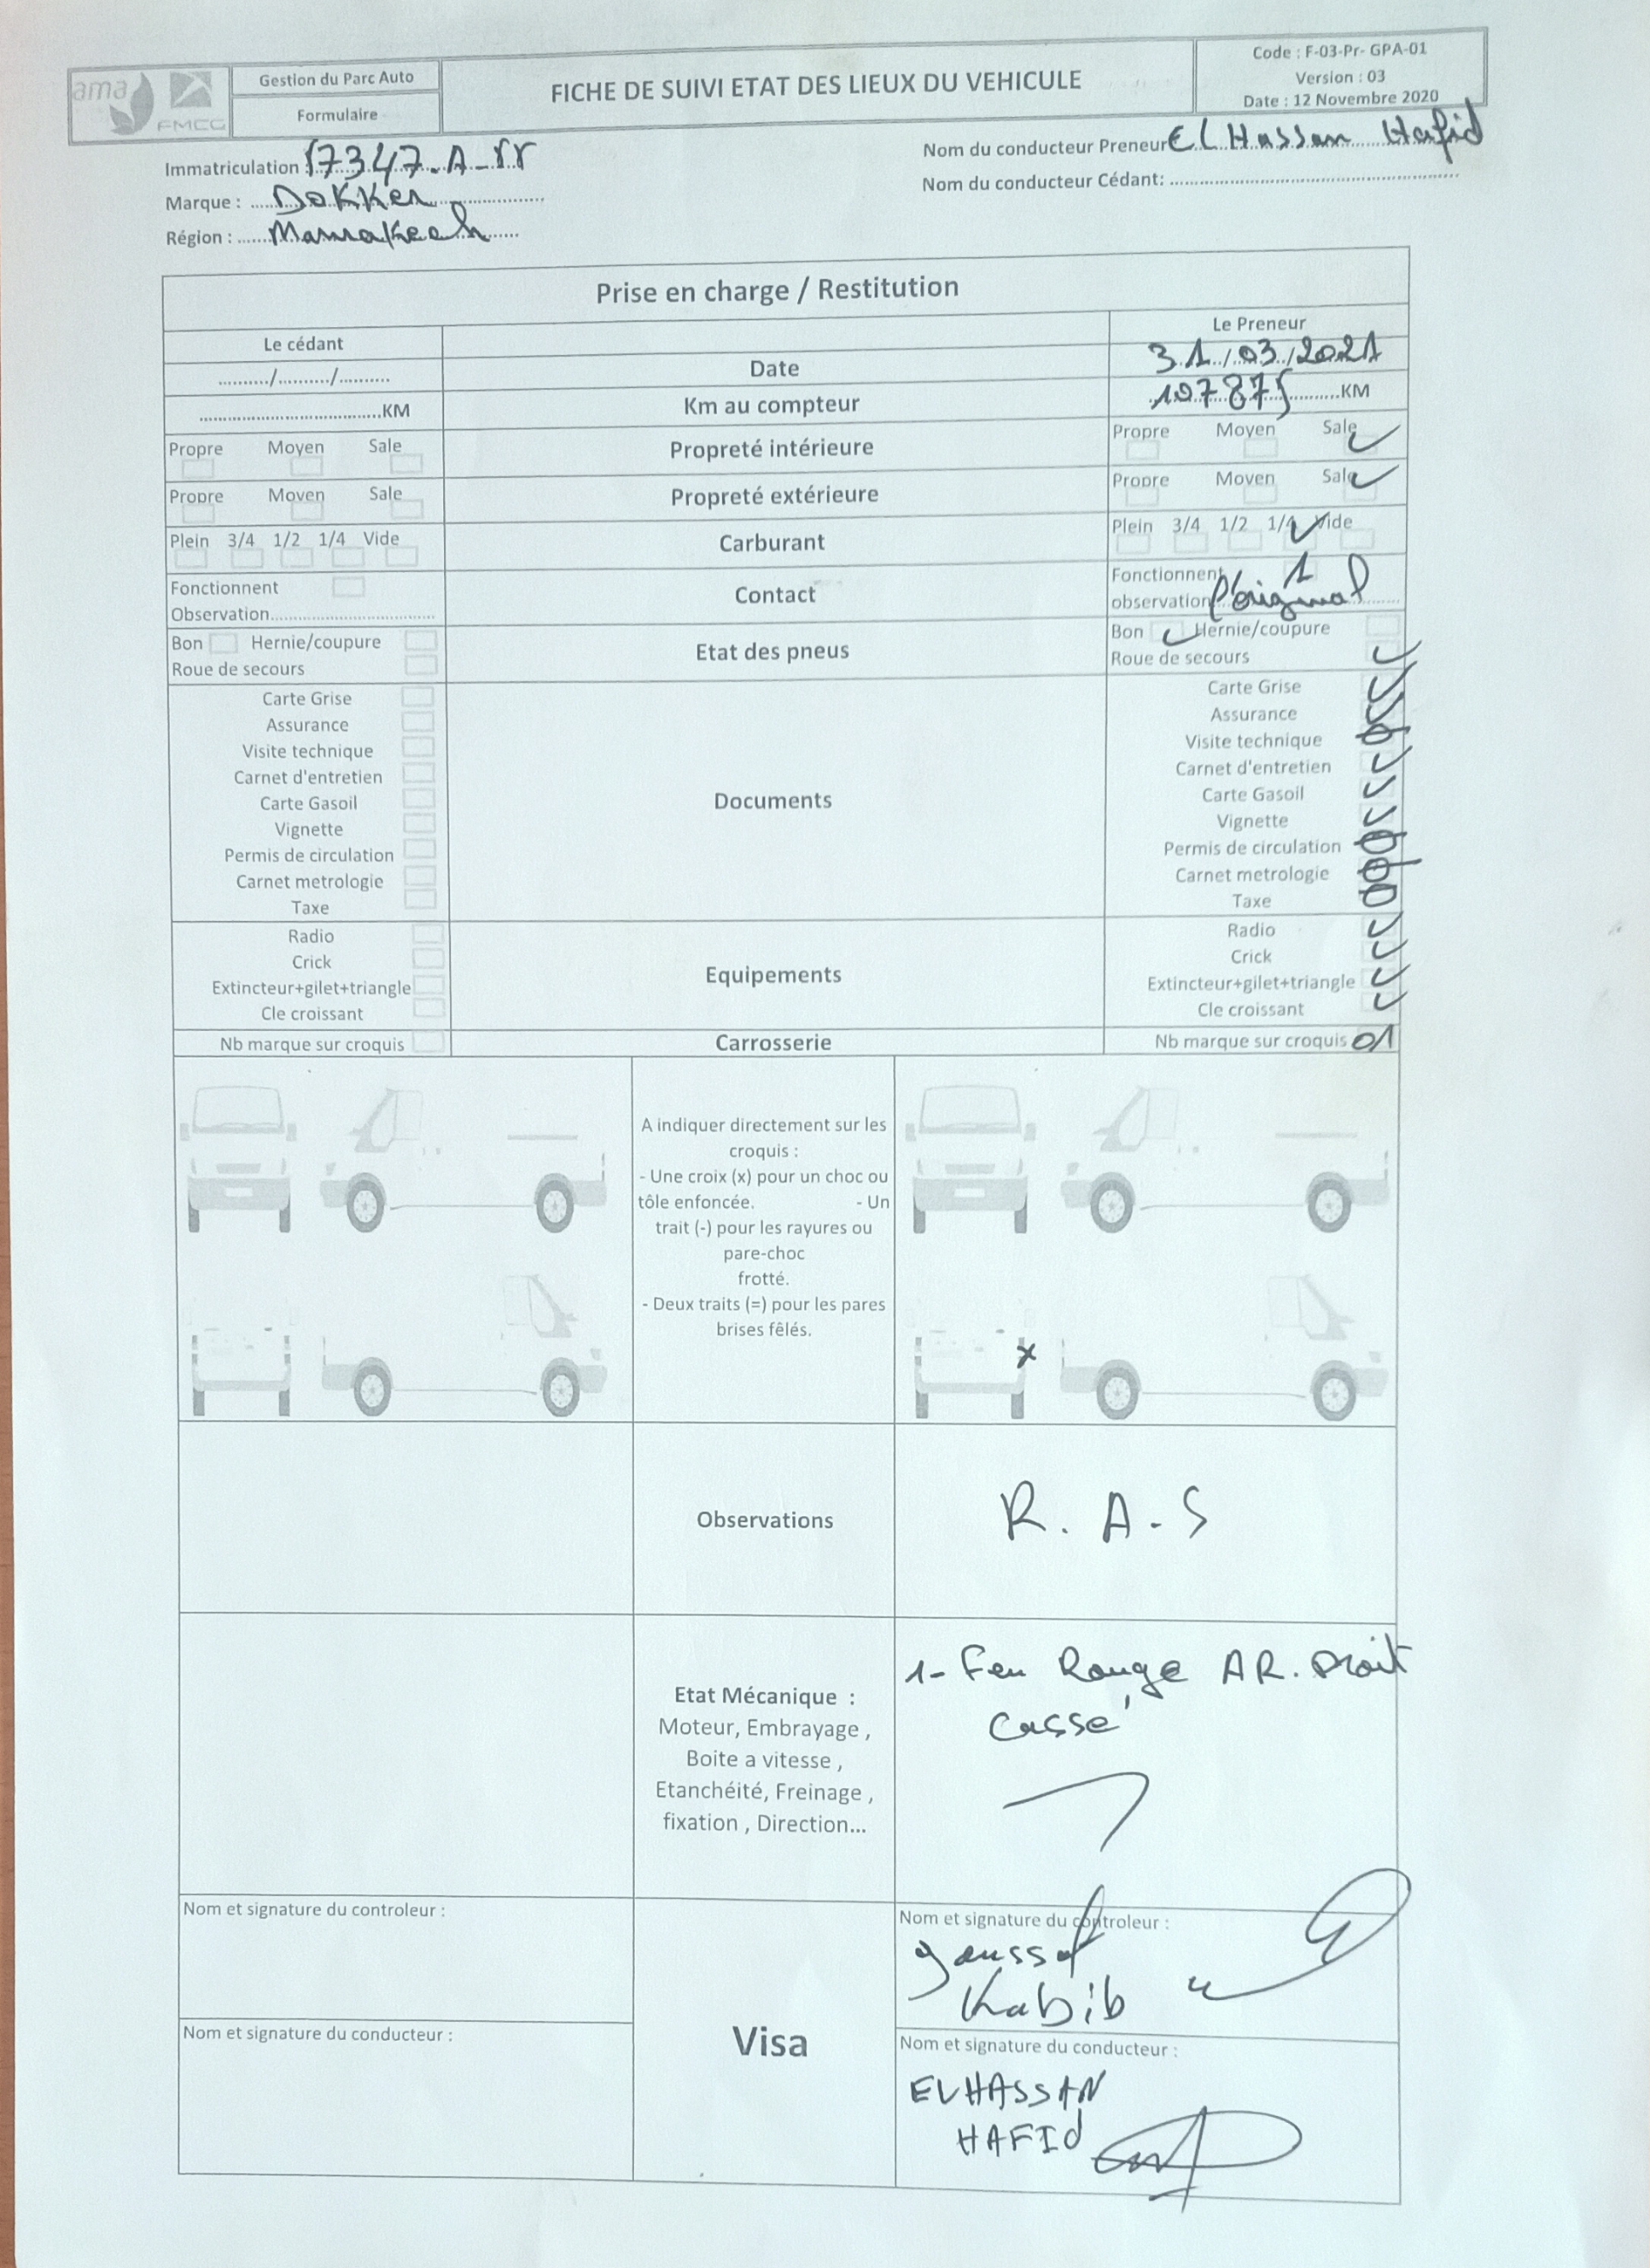 ama
FMCG
Gestion du Parc Auto
Formulaire
FICHE DE SUIVI ETAT DES LIEUX DU VEHICULE
Code : F-03-Pr- GPA-01
Version : 03
Date : 12 Novembre 2020
Immatriculation : 17347-A-
Marque : Dokker
Région : Marrakech
Nom du conducteur Preneur El Hassan Hafid
Nom du conducteur Cédant:
Prise en charge / Restitution
Le cédant
Le Preneur
........./........../..........
Date
31/03/2021
..................................KM
Km au compteur
107875 KM
Propre Moyen Sale
Propreté intérieure
Propre Moyen Sale
Propre Moyen Sale
Propreté extérieure
Propre Moyen Sale
Plein 3/4 1/2 1/4 Vide
Carburant
Plein 3/4 1/2 1/4 Vide
Fonctionnent
Observation
Contact
Fonctionnent 1
observation original
Bon Hernie/coupure
Roue de secours
Etat des pneus
Bon Hernie/coupure
Roue de secours
Carte Grise
Assurance
Visite technique
Carnet d'entretien
Carte Gasoil
Vignette
Permis de circulation
Carnet metrologie
Taxe
Documents
Carte Grise
Assurance
Visite technique
Carnet d'entretien
Carte Gasoil
Vignette
Permis de circulation
Carnet metrologie
Taxe
Radio
Crick
Extincteur+gilet+triangle
Cle croissant
Equipements
Radio
Crick
Extincteur+gilet+triangle
Cle croissant
Nb marque sur croquis
Carrosserie
Nb marque sur croquis 01
A indiquer directement sur les
croquis :
- Une croix (x) pour un choc ou
tôle enfoncée. - Un
trait (-) pour les rayures ou
pare-choc
frotté.
- Deux traits (=) pour les pares
brises fêlés.
x
Observations
R.A-S
Etat Mécanique :
Moteur, Embrayage ,
Boite a vitesse ,
Etanchéité, Freinage ,
fixation , Direction...
1- Feu Rouge AR. Droit
Cassé
Nom et signature du controleur :
Nom et signature du conducteur :
Visa
Nom et signature du controleur :
Habib
Nom et signature du conducteur :
ELHASSAN
HAFId